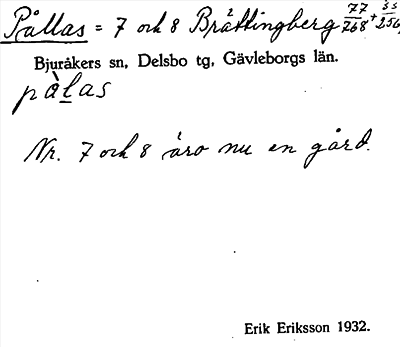 Pållas = 7 och 8 Brättingberg 77/768 + 33/256,
Bjuråkers sn, Delsbo tg, Gävleborgs län.
pàlas
Nr. 7 och 8 äro nu en gård.
Erik Eriksson 1932.